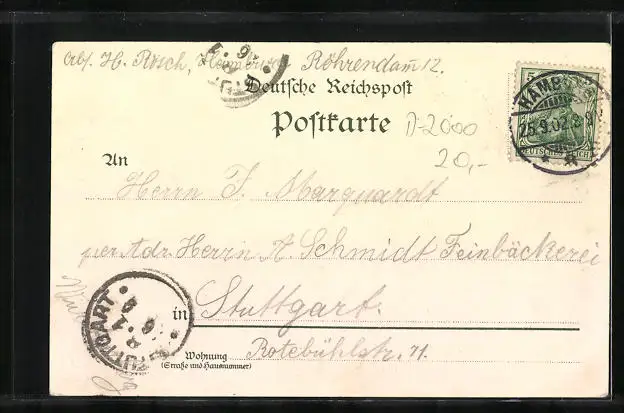 Abs. H. Rösch, Hamburg, Röhrendam 12.
Deutsche Reichspost
Postkarte
D-2000
20,-
5
HAMBURG
DEUTSCHES REICH
An
Herrn F. Marquardt
per Adr. Herrn A. Schmidt Feinbäckerei
in Stuttgart.
STUTTGART
Wohnung Rotebühlstr. 71.
(Straße und Hausnummer)